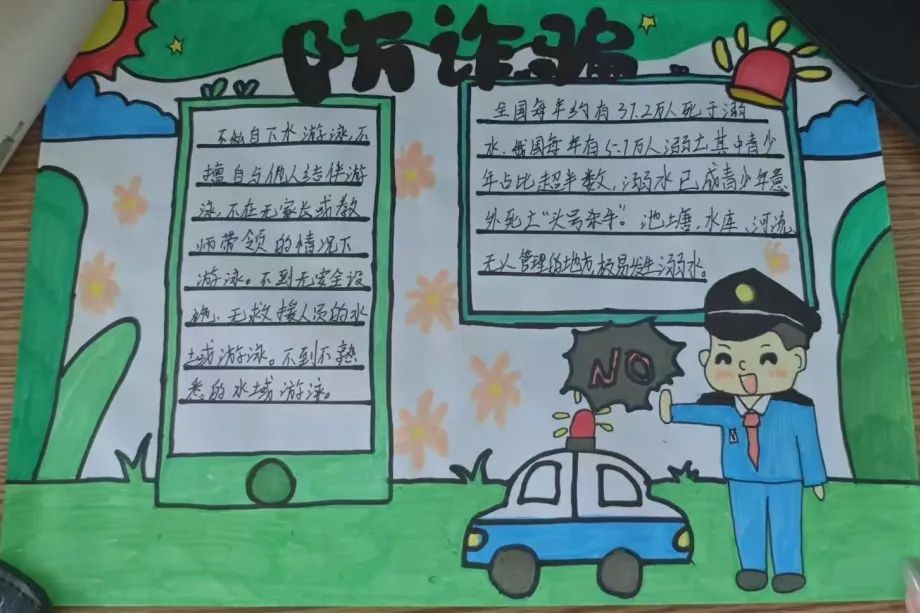 防诈骗
不私自下水游泳,不
擅自与他人结伴游
泳,不在无家长或教
师带领的情况下
游泳。不到无安全设
施、无救援人员的水
域游泳。不到不熟
悉的水域游泳。
全国每年约有37.2万人死于溺
水,我国每年有5.7万人溺亡其中青少
年占比超半数,溺水已成青少年意
外死亡“头号杀手”。池塘,水库、河流,
无人管理的地方极易发生溺水。
NO